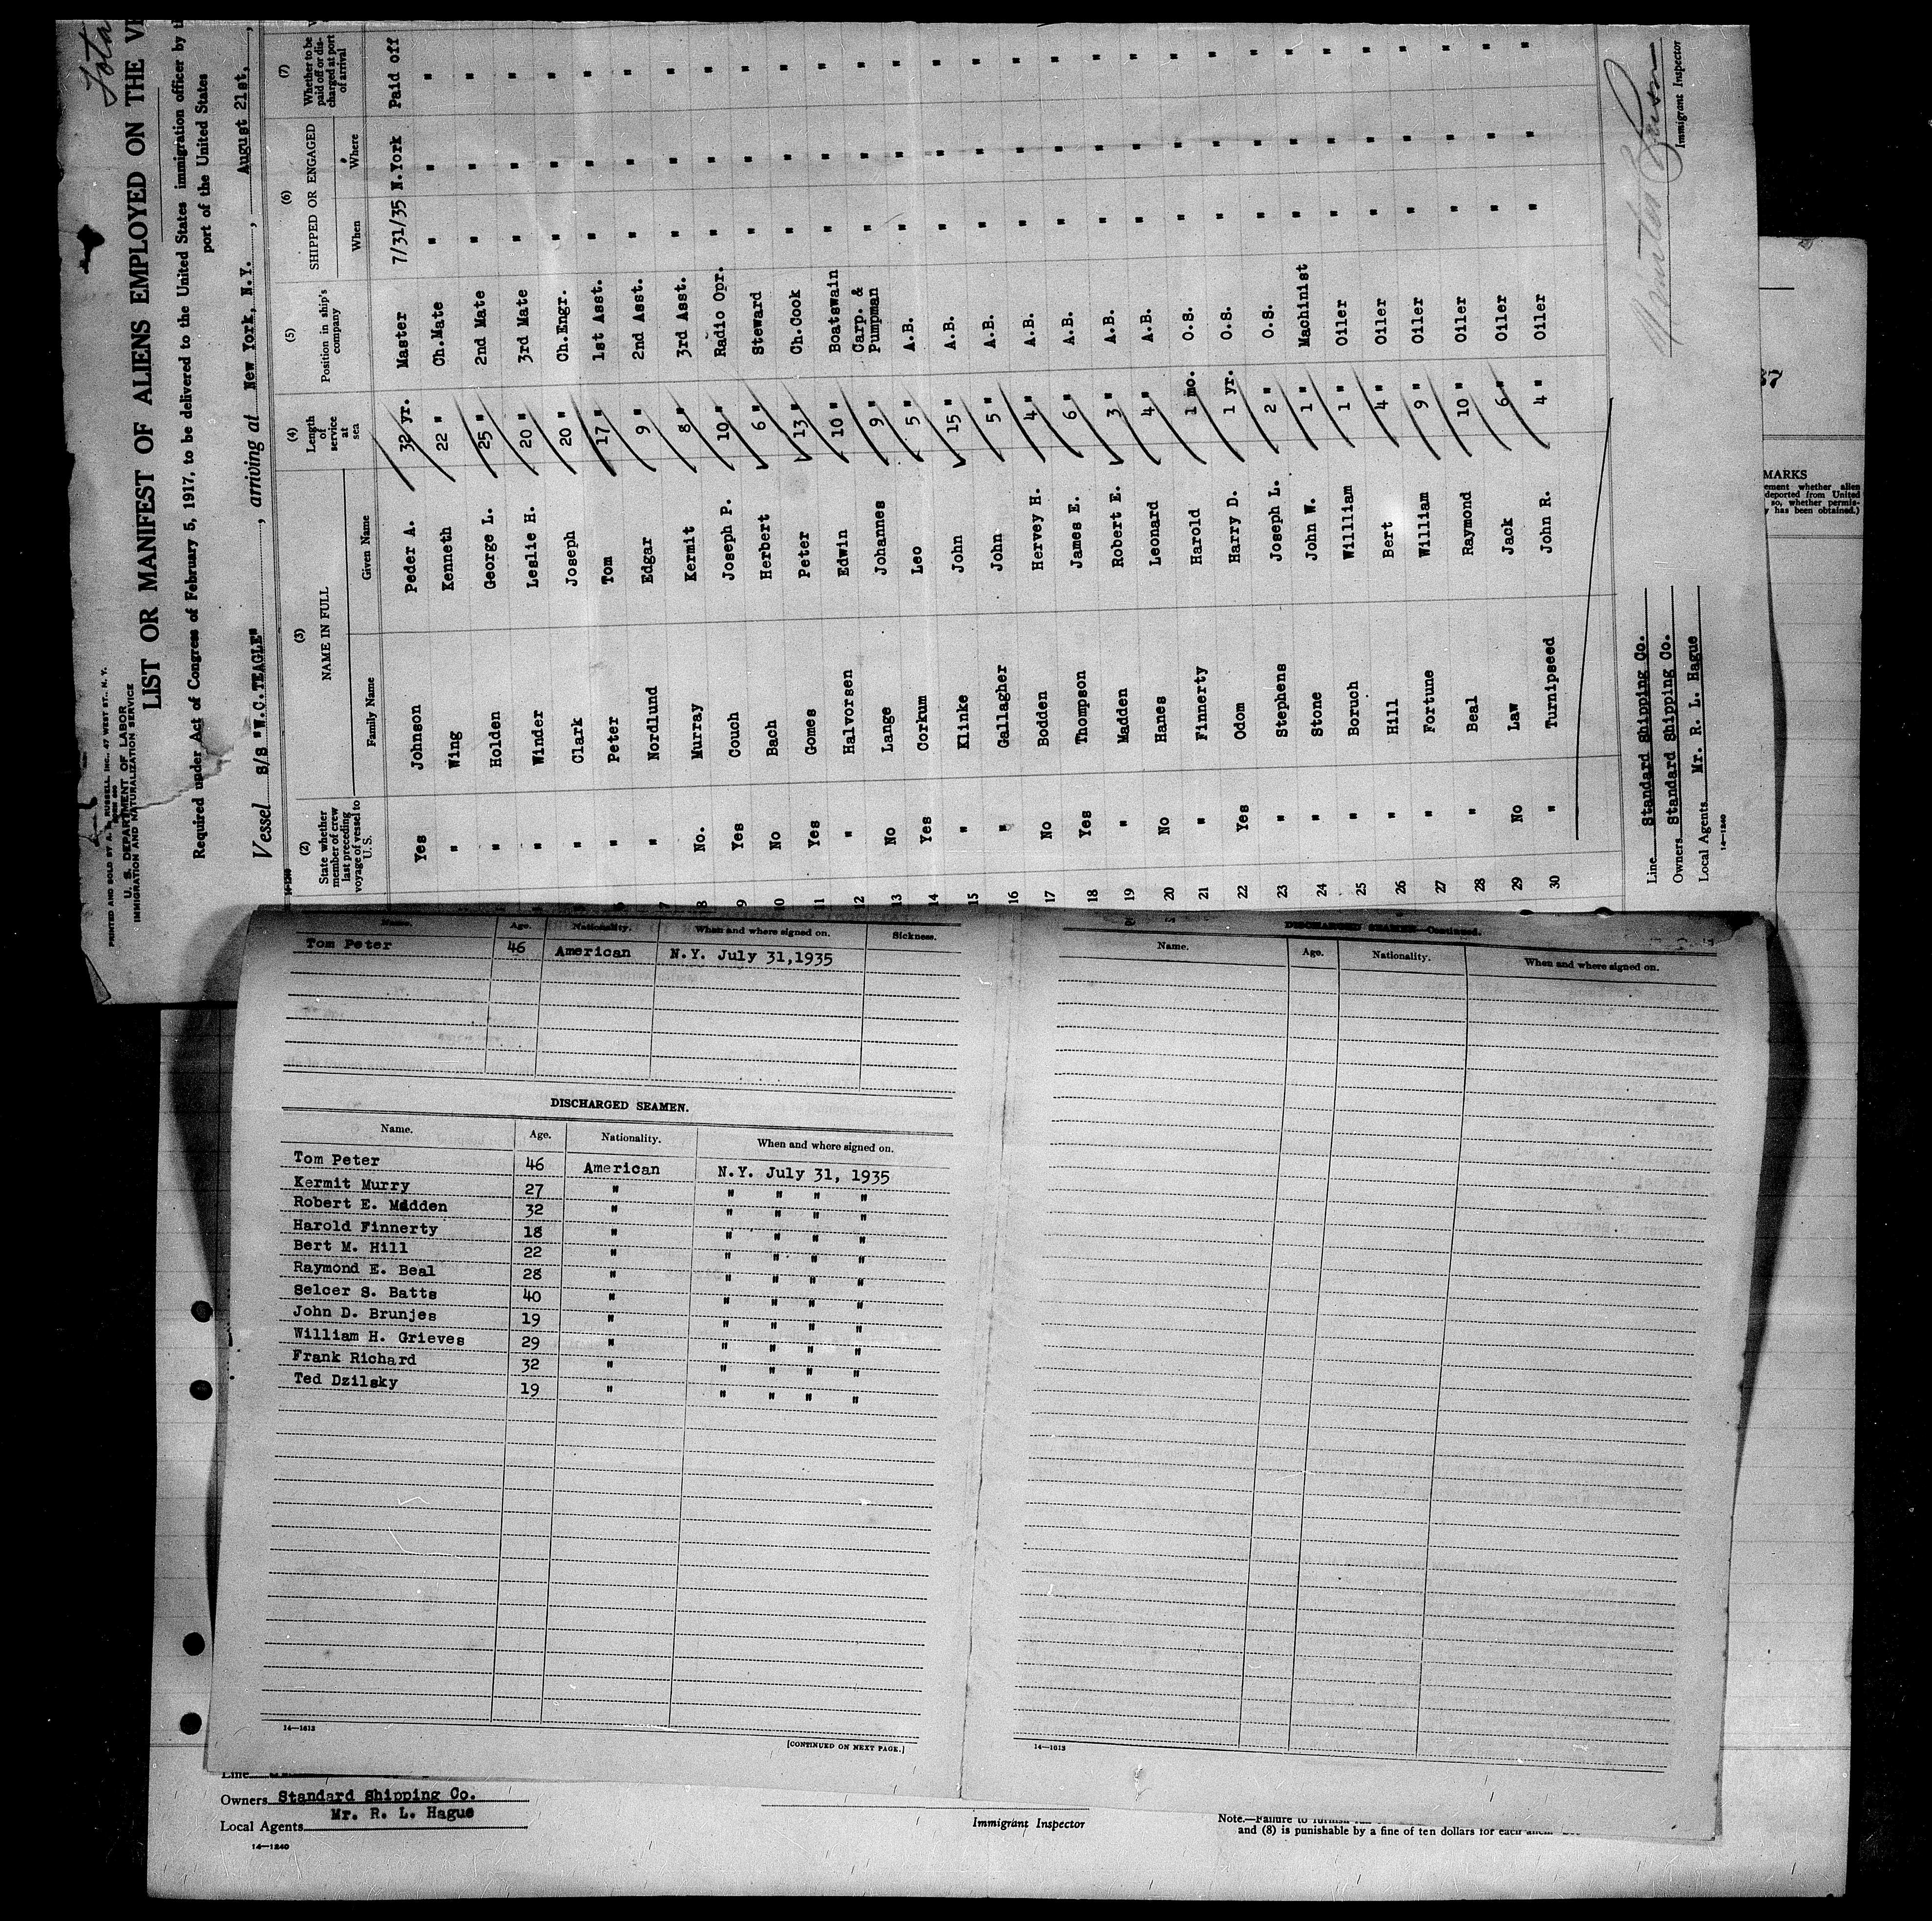 PRINTED AND SOLD BY A. R. RUSSELL, INC., 47 WEST ST., N. Y.
U. S. DEPARTMENT OF LABOR
IMMIGRATION AND NATURALIZATION SERVICE
LIST OR MANIFEST OF ALIENS EMPLOYED ON THE
Required under Act of Congress of February 5, 1917, to be delivered to the United States immigration officer by
port of the United States
Vessel S/S "W.C.TEAGLE", arriving at New York, N.Y., August 21st,
(2) State whether member of crew last preceding voyage of vessel to U.S.
(3) NAME IN FULL
Family Name Given Name
(4) Length of service at sea
(5) Position in ship's company
(6) SHIPPED OR ENGAGED
When Where
(7) Whether to be paid off or discharged at port of arrival
Yes Johnson Peder A. 32 yr. Master 7/31/35 N.York Paid off
" Wing Kenneth 22 " Ch.Mate " " "
" Holden George L. 25 " 2nd Mate " " "
" Winder Leslie H. 20 " 3rd Mate " " "
" Clark Joseph 20 " Ch.Engr. " " "
" Peter Tom 17 " 1st Asst. " " "
" Nordlund Edgar 9 " 2nd Asst. " " "
8 No. Murray Kermit 8 " 3rd Asst. " " "
9 Yes Couch Joseph P. 10 " Radio Opr. " " "
10 No Bach Herbert 6 " Steward " " "
11 Yes Gomes Peter 13 " Ch.Cook " " "
12 " Halvorsen Edwin 10 " Boatswain " " "
13 No Lange Johannes 9 " Carp. & Pumpman " " "
14 Yes Corkum Leo 5 " A.B. " " "
15 " Klinke John 15 " A.B. " " "
16 " Gallagher John 5 " A.B. " " "
17 No Bodden Hervey H. 4 " A.B. " " "
18 Yes Thompson James E. 6 " A.B. " " "
19 " Madden Robert E. 3 " A.B. " " "
20 No Hanes Leonard 4 " A.B. " " "
21 " Finnerty Harold 1 mo. O.S. " " "
22 Yes Odom Harry D. 1 yr. O.S. " " "
23 " Stephens Joseph L. 2 " O.S. " " "
24 " Stone John W. 1 " Machinist " " "
25 " Boruch William 1 " Oiler " " "
26 " Hill Bert 4 " Oiler " " "
27 " Fortune William 9 " Oiler " " "
28 " Beal Raymond 10 " Oiler " " "
29 No Law Jack 6 " Oiler " " "
30 " Turnipseed John R. 4 " Oiler " " "
Line Standard Shipping Co.
Owners Standard Shipping Co.
Local Agents Mr. R. L. Hague
14-1240
Immigrant Inspector
37
MARKS
ement whether alien
deported from United
so, whether permis-
y has been obtained.)
Name. Age. Nationality. When and where signed on. Sickness.
Tom Peter 46 American N.Y. July 31,1935
DISCHARGED SEAMEN.
Name. Age. Nationality. When and where signed on.
Tom Peter 46 American N.Y. July 31, 1935
Kermit Murry 27 " " " " "
Robert E. Madden 32 " " " " "
Harold Finnerty 18 " " " " "
Bert M. Hill 22 " " " " "
Raymond E. Beal 28 " " " " "
Selcer S. Batts 40 " " " " "
John D. Brunjes 19 " " " " "
William H. Grieves 29 " " " " "
Frank Richard 32 " " " " "
Ted Dzilsky 19 " " " " "
14—1613
[CONTINUED ON NEXT PAGE.]
DISCHARGED SEAMEN—Continued.
Name. Age. Nationality. When and where signed on.
14—1613
Line
Owners Standard Shipping Co.
Local Agents Mr. R. L. Hague
14—1240
Immigrant Inspector
Note.—Failure to furnish
and (8) is punishable by a fine of ten dollars for each alien.